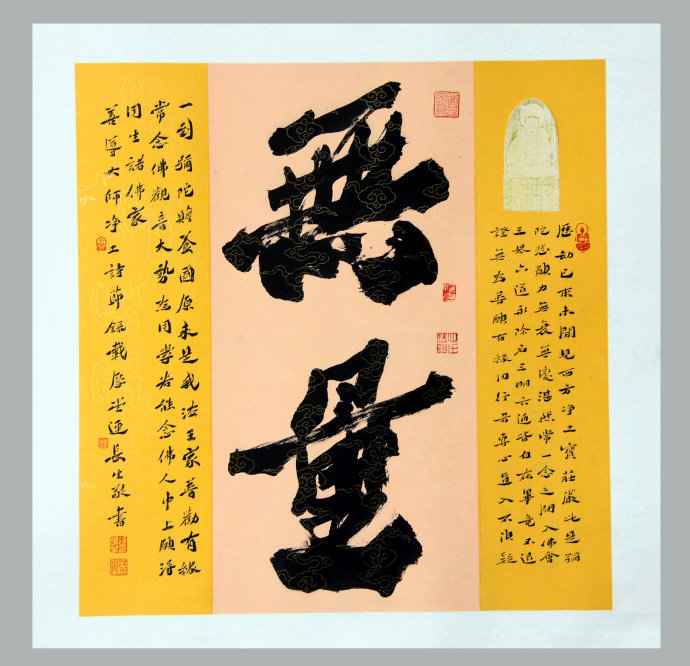 歷劫已來未聞見西方淨土寶莊嚴此是彌
陀悲願力無衰無變湛然常一念之間入佛會
三界六道永除名三明六通皆自在畢竟不退
證無為普願有緣同行者專心直入不須疑
無
量
一到彌陀養國原來是我法王家普勸有緣
常念佛觀音大勢為同學若能念佛人中上願得
同生諸佛家
善導大師淨土詩節錄長生敬書